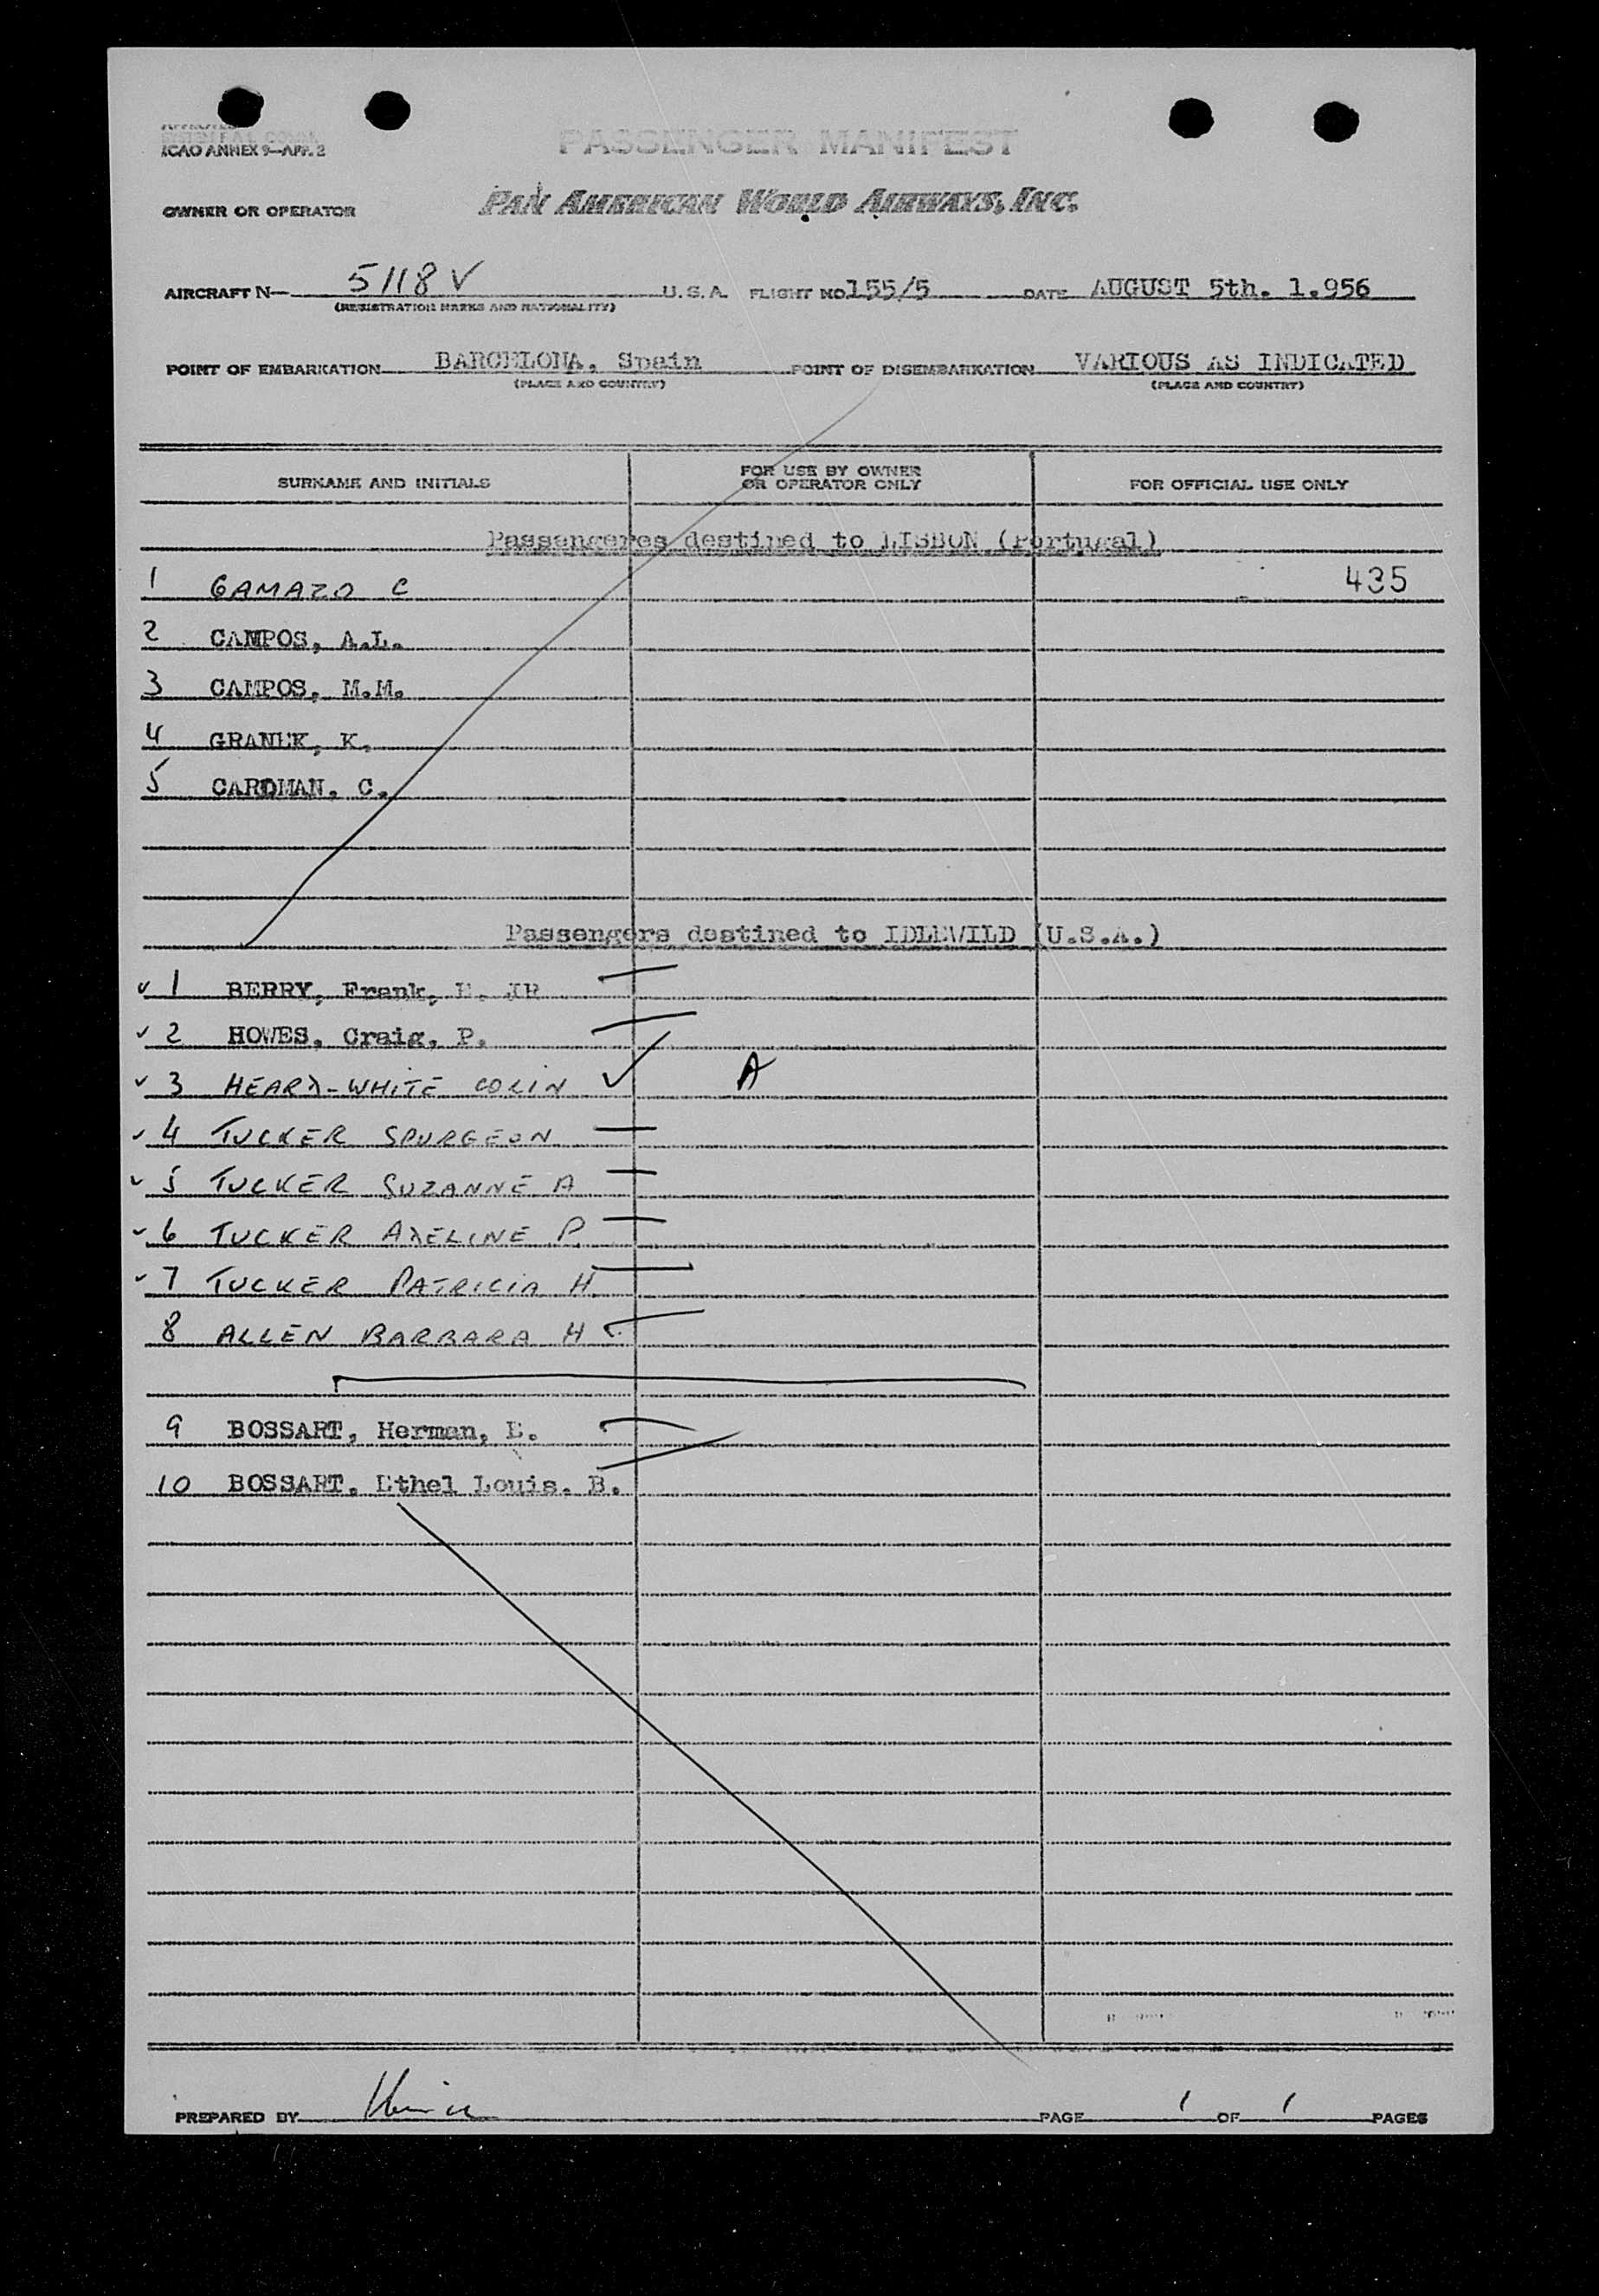 ICAO ANNEX 9—APP. 2
PASSENGER MANIFEST
OWNER OR OPERATOR PAN AMERICAN WORLD AIRWAYS, INC.
AIRCRAFT N— 5118V U.S.A. FLIGHT NO 155/5 DATE AUGUST 5th. 1.956
(REGISTRATION MARKS AND NATIONALITY)
POINT OF EMBARKATION BARCELONA, Spain POINT OF DISEMBARKATION VARIOUS AS INDICATED
(PLACE AND COUNTRY) (PLACE AND COUNTRY)
SURNAME AND INITIALS FOR USE BY OWNER OR OPERATOR ONLY FOR OFFICIAL USE ONLY
Passengeres destined to LISBON (Portugal)
1 GAMAZO C 435
2 CAMPOS, A.L.
3 CAMPOS, M.M.
4 GRANEK, K.
5 CARDMAN, C.
Passengers destined to IDLEWILD (U.S.A.)
✓ 1 BERRY, Frank, E. JR
✓ 2 HOWES, Craig, P.
✓ 3 HEARD-WHITE COLIN ✓ A
✓ 4 TUCKER SPURGEON
✓ 5 TUCKER SUZANNE A
✓ 6 TUCKER ADELINE P
✓ 7 TUCKER PATRICIA H
8 ALLEN BARBARA H
9 BOSSART, Herman, E.
10 BOSSART, Ethel Louis. B.
PREPARED BY PAGE 1 OF 1 PAGES